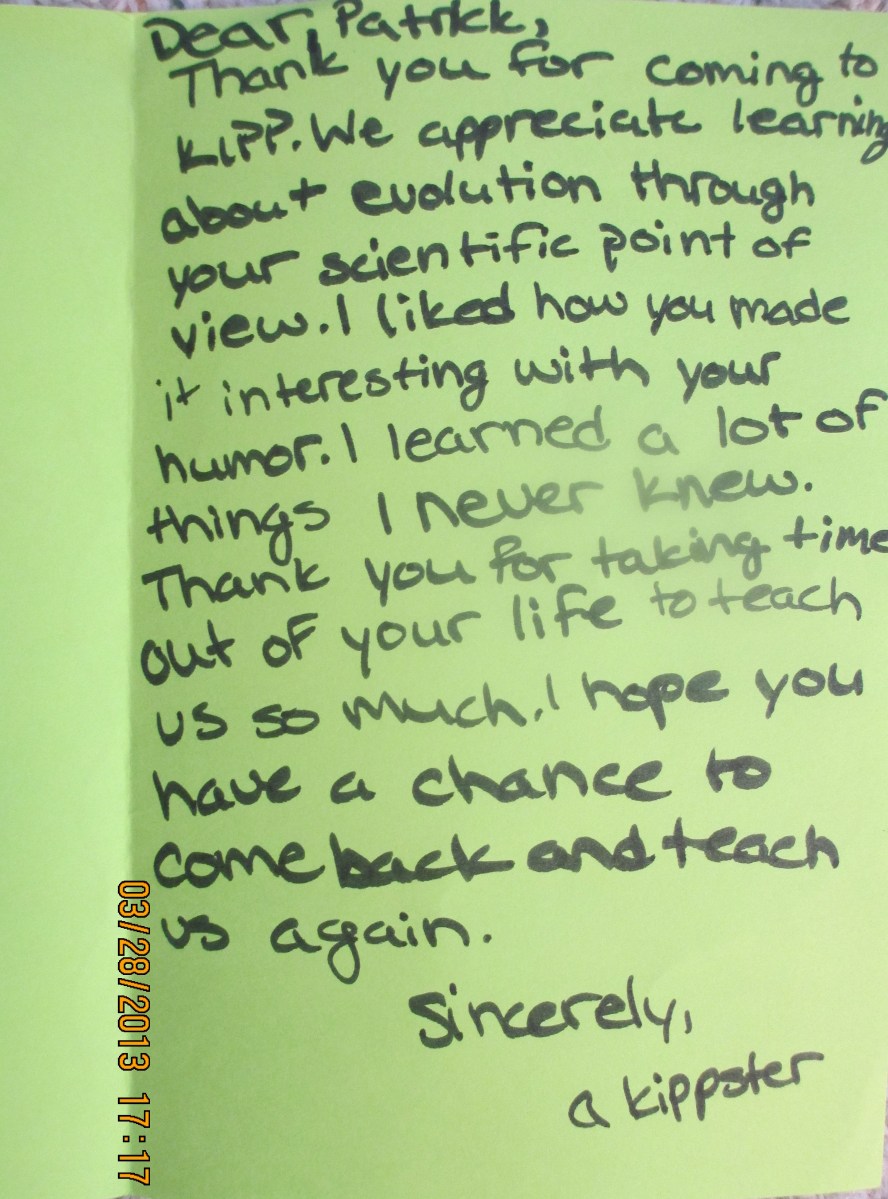 Dear, Patrick,
Thank you for coming to
KIPP. We appreciate learning
about evolution through
your scientific point of
view. I liked how you made
it interesting with your
humor. I learned a lot of
things I never knew.
Thank you for taking time
out of your life to teach
us so much. I hope you
have a chance to
come back and teach
us again.
Sincerely,
a kippster
03/28/2013 17:17